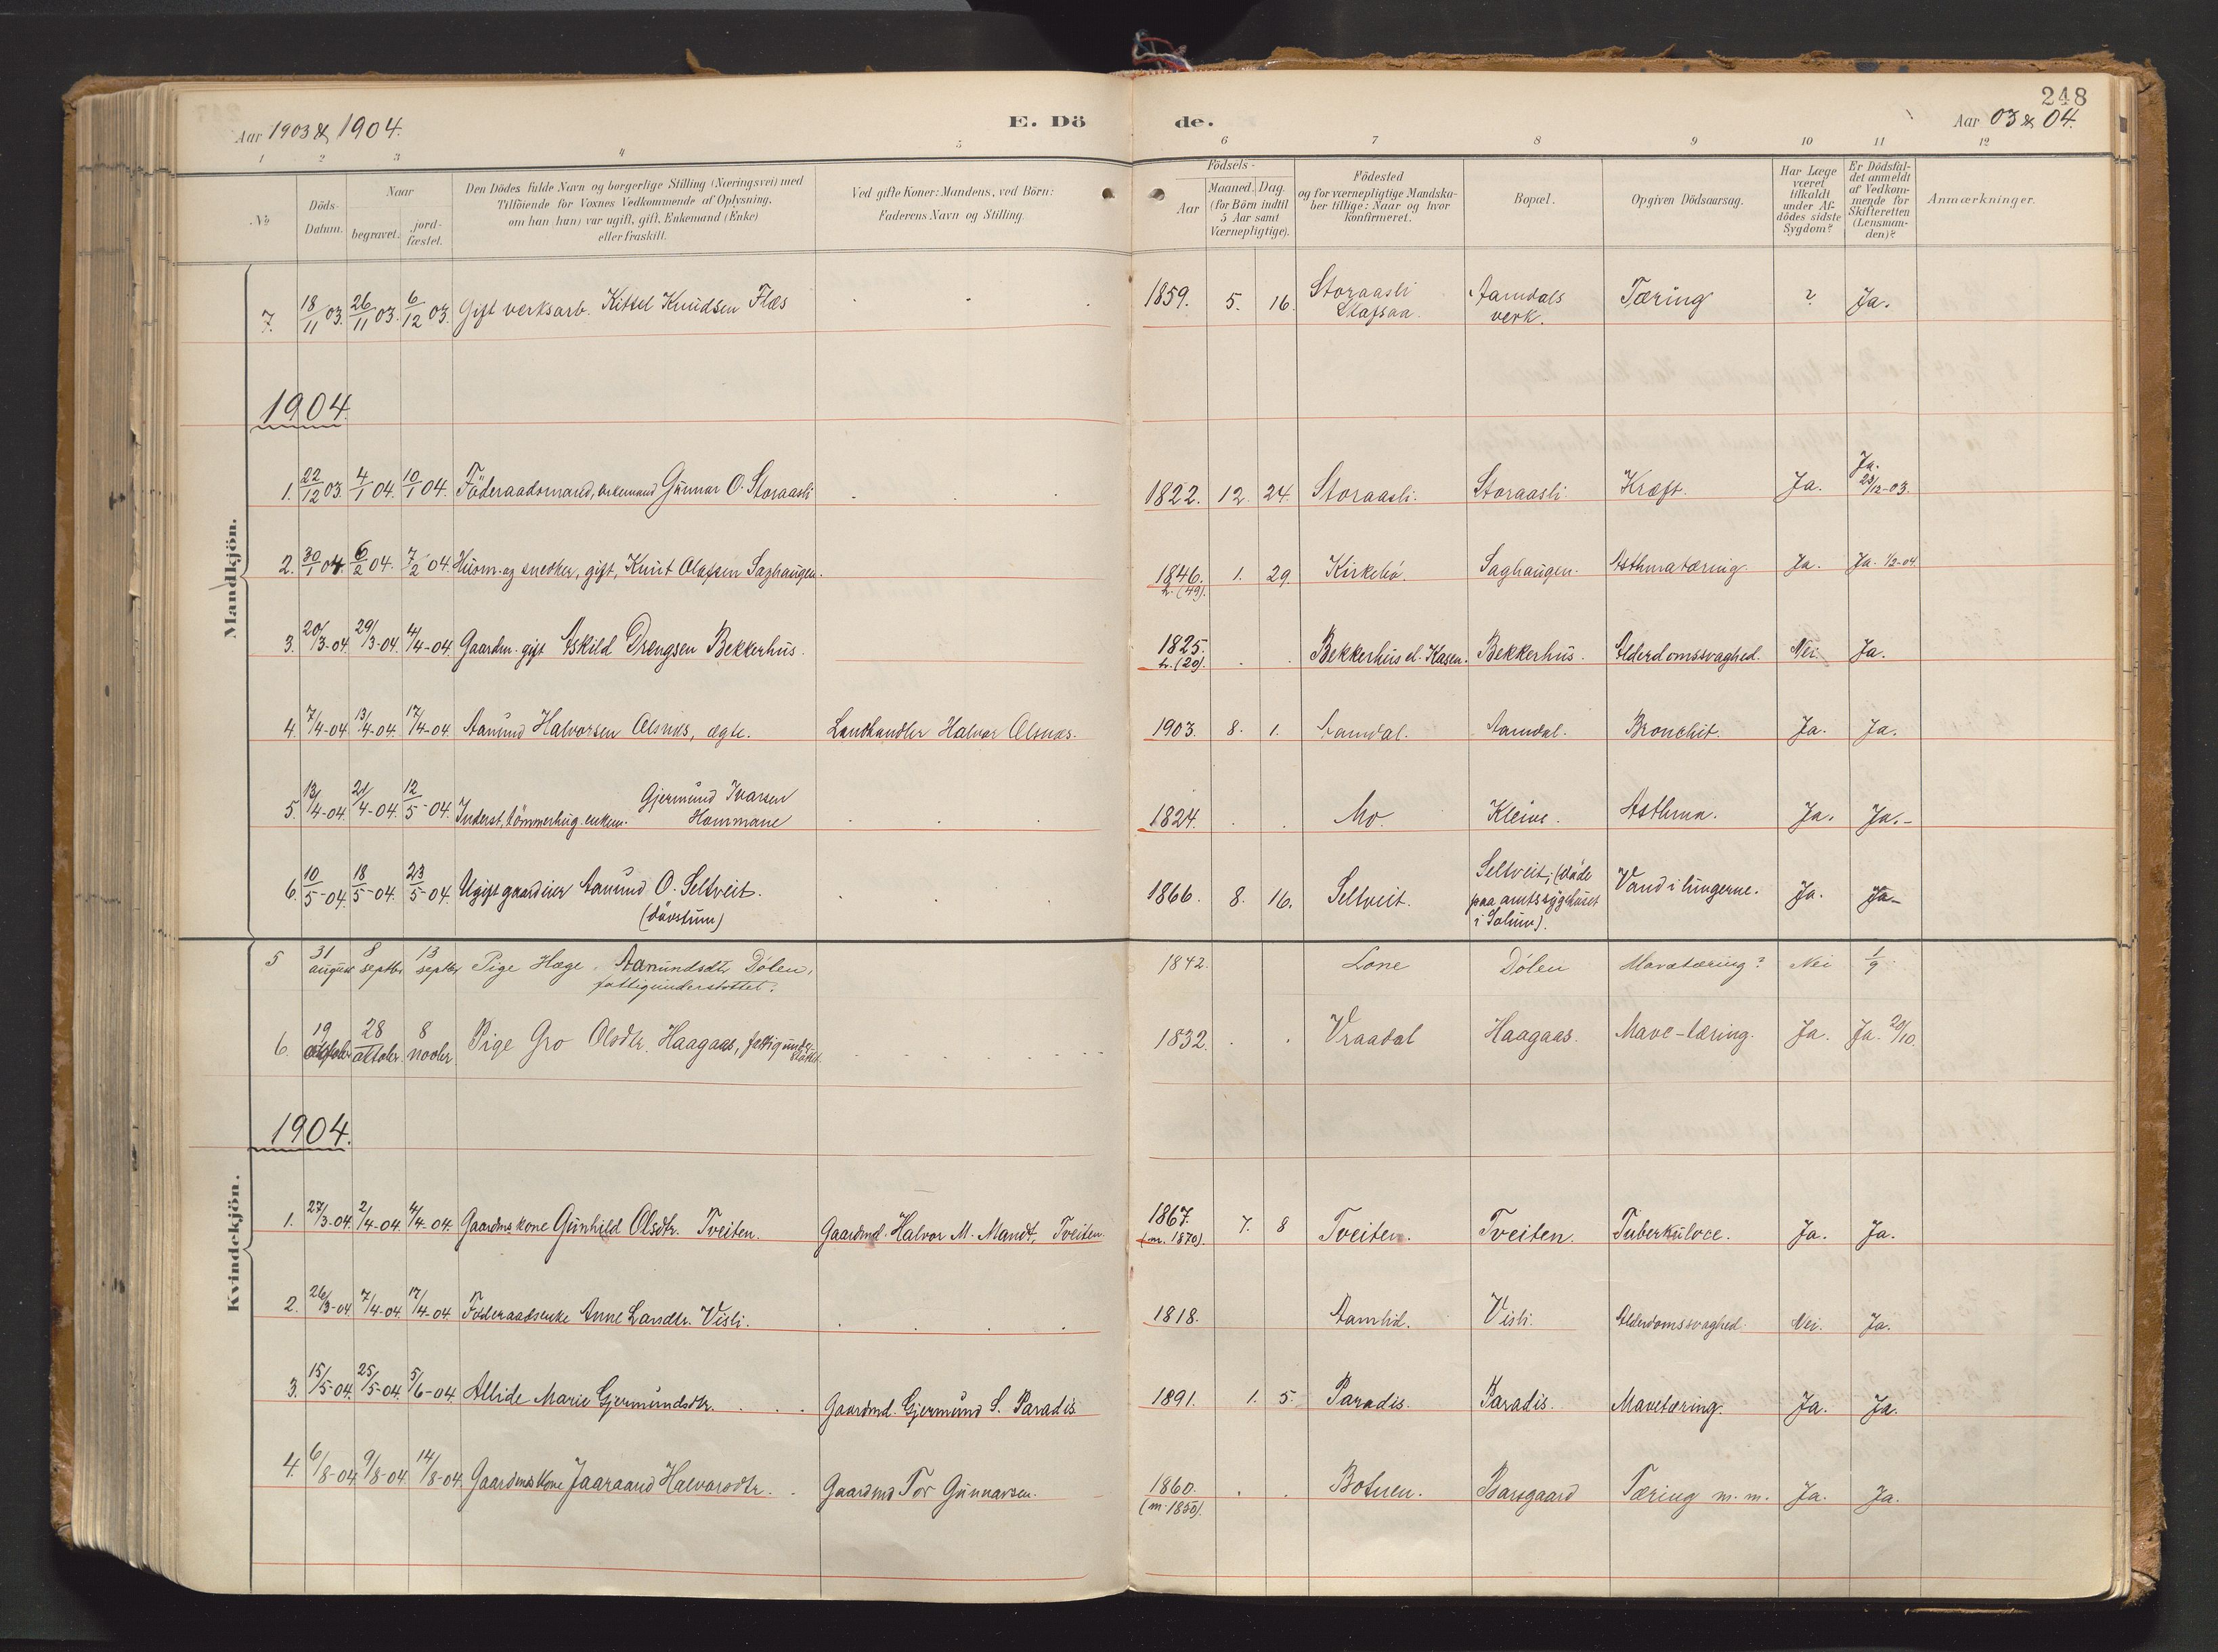 248
Aar 1903 & 1904.
E. Dö de.
Aar 03 & 04.
1 2 3 4 5 6 7 8 9 10 11 12
№
Döds-Datum.
Naar
begravet.
jord-fæstet.
Den Dödes fulde Navn og borgerlige Stilling (Næringsvei) med
Tilföiende for Voxnes Vedkommende af Oplysning,
om han (hun) var ugift, gift, Enkemand (Enke)
eller fraskilt.
Ved gifte Koner: Mandens, ved Börn:
Faderens Navn og Stilling.
Födsels-
Aar
Maaned. Dag.
(for Börn indtil
5 Aar samt
Værnepligtige).
Födested
og for værnepligtige Mandska-
ber tillige: Naar og hvor
konfirmeret.
Bopæl.
Opgiven Dödsaarsag.
Har Læge
været
tilkaldt
under Af-
dödes sidste
Sygdom?
Er Dödsfal-
det anmeldt
af Vedkom-
mende for
Skifteretten
(Lensman-
den)?
Anmærkninger.
Mandkjön.
7. 18/11 03. 26/11 03. 6/12 03. Gift verksarb. Kittel Knudsen Flæs . . . 1859. 5. 16. Storaasli Skafsaa. Aamdals verk. Tæring ? Ja.
1904.
1. 22/12 03. 4/1 04. 10/1 04. Föderaadsmand, enkemand Gunnar O. Storaasli . . . 1822. 12. 24. Storaasli. Storaasli. Kræft. Ja. Ja. 23/12-03.
2. 30/1 04. 6/2 04. 7/2 04. Husm. og snedker, gift, Knut Olafsen Saghaugen. 1846. (49). 1. 29. Kirkebö. Saghaugen. Asthmatæring Ja. Ja. 1/2-04.
3. 20/3-04. 29/3-04. 4/4-04. Gaardm. gift Askild Drengsen Bekkerhus. 1825. (20). . . Bekkerhus el. Kasen. Bekkerhus. Alderdomssvaghed. Nei. Ja.
4. 7/4-04. 13/4-04. 17/4-04. Aamund Halvorsen Ælsnes, ægte. Landhandler Halvor Ælsnæs. 1903. 8. 1. Aamdal. Aamdal. Bronchit. Ja. Ja.
5. 13/4-04. 21/4-04. 12/5-04. Inderst, tömmerhug. enkem. Gjermund Ivarsen Hommane . . . 1824. . . Mo. Kleive. Asthma. Ja. Ja.-
6. 10/5-04. 18/5-04. 23/5-04. Ugift gaardeier Aamund O. Seltveit. (dövstum) . . . 1866. 8. 16. Seltveit. Seltveit; (döde paa amtssygehuset i Solum). Vand i lungerne. Ja. Ja-
Kvindekjön.
5 31 august 8 septbr 13 septbr Pige Hæge Aamundsdtr Dölen, fattigunderstöttet. 1842. Lone Dölen Mavetæring? Nei 1/9
6. 19 oktober 28 oktober. 8 novbr. Pige Gro Olsdtr. Haagaas, fattigunderstöttet. 1832. . . Vraadal Haagaas. Mave-tæring. Ja. Ja. 20/10.
1904.
1. 27/3-04. 2/4-04. 4/4-04. Gaardmskone Gunhild Olsdtr. Tveiten. Gaardmd. Halvor M. Mandt, Tveiten. 1867. (m. 1870). 7. 8 Tveiten. Tveiten. Tuberkulose. Ja. Ja.
2. 26/3-04 7/4-04. 17/4-04. Föderaadsenke Anne Landtr. Visli. . . . 1818. Aamlid. Visli. Alderdomssvaghed. Nei. Ja.
3. 15/5-04. 25/5-04. 5/6-04. Allide Marie Gjermundsdtr. . . . Gaardmd. Gjermund S. Paradis. 1891. 1. 5. Paradis. Paradis. Mavetæring. Ja. Ja.
4. 6/8-04. 9/8-04 14/8-04. Gaardmdskone Jaaraand Halvorsdtr. . . Gaardmd Tor Gunnarsen. 1860. (m. 1850). . . Botnen. Baasgaard Tæring m.m. Ja. Ja.